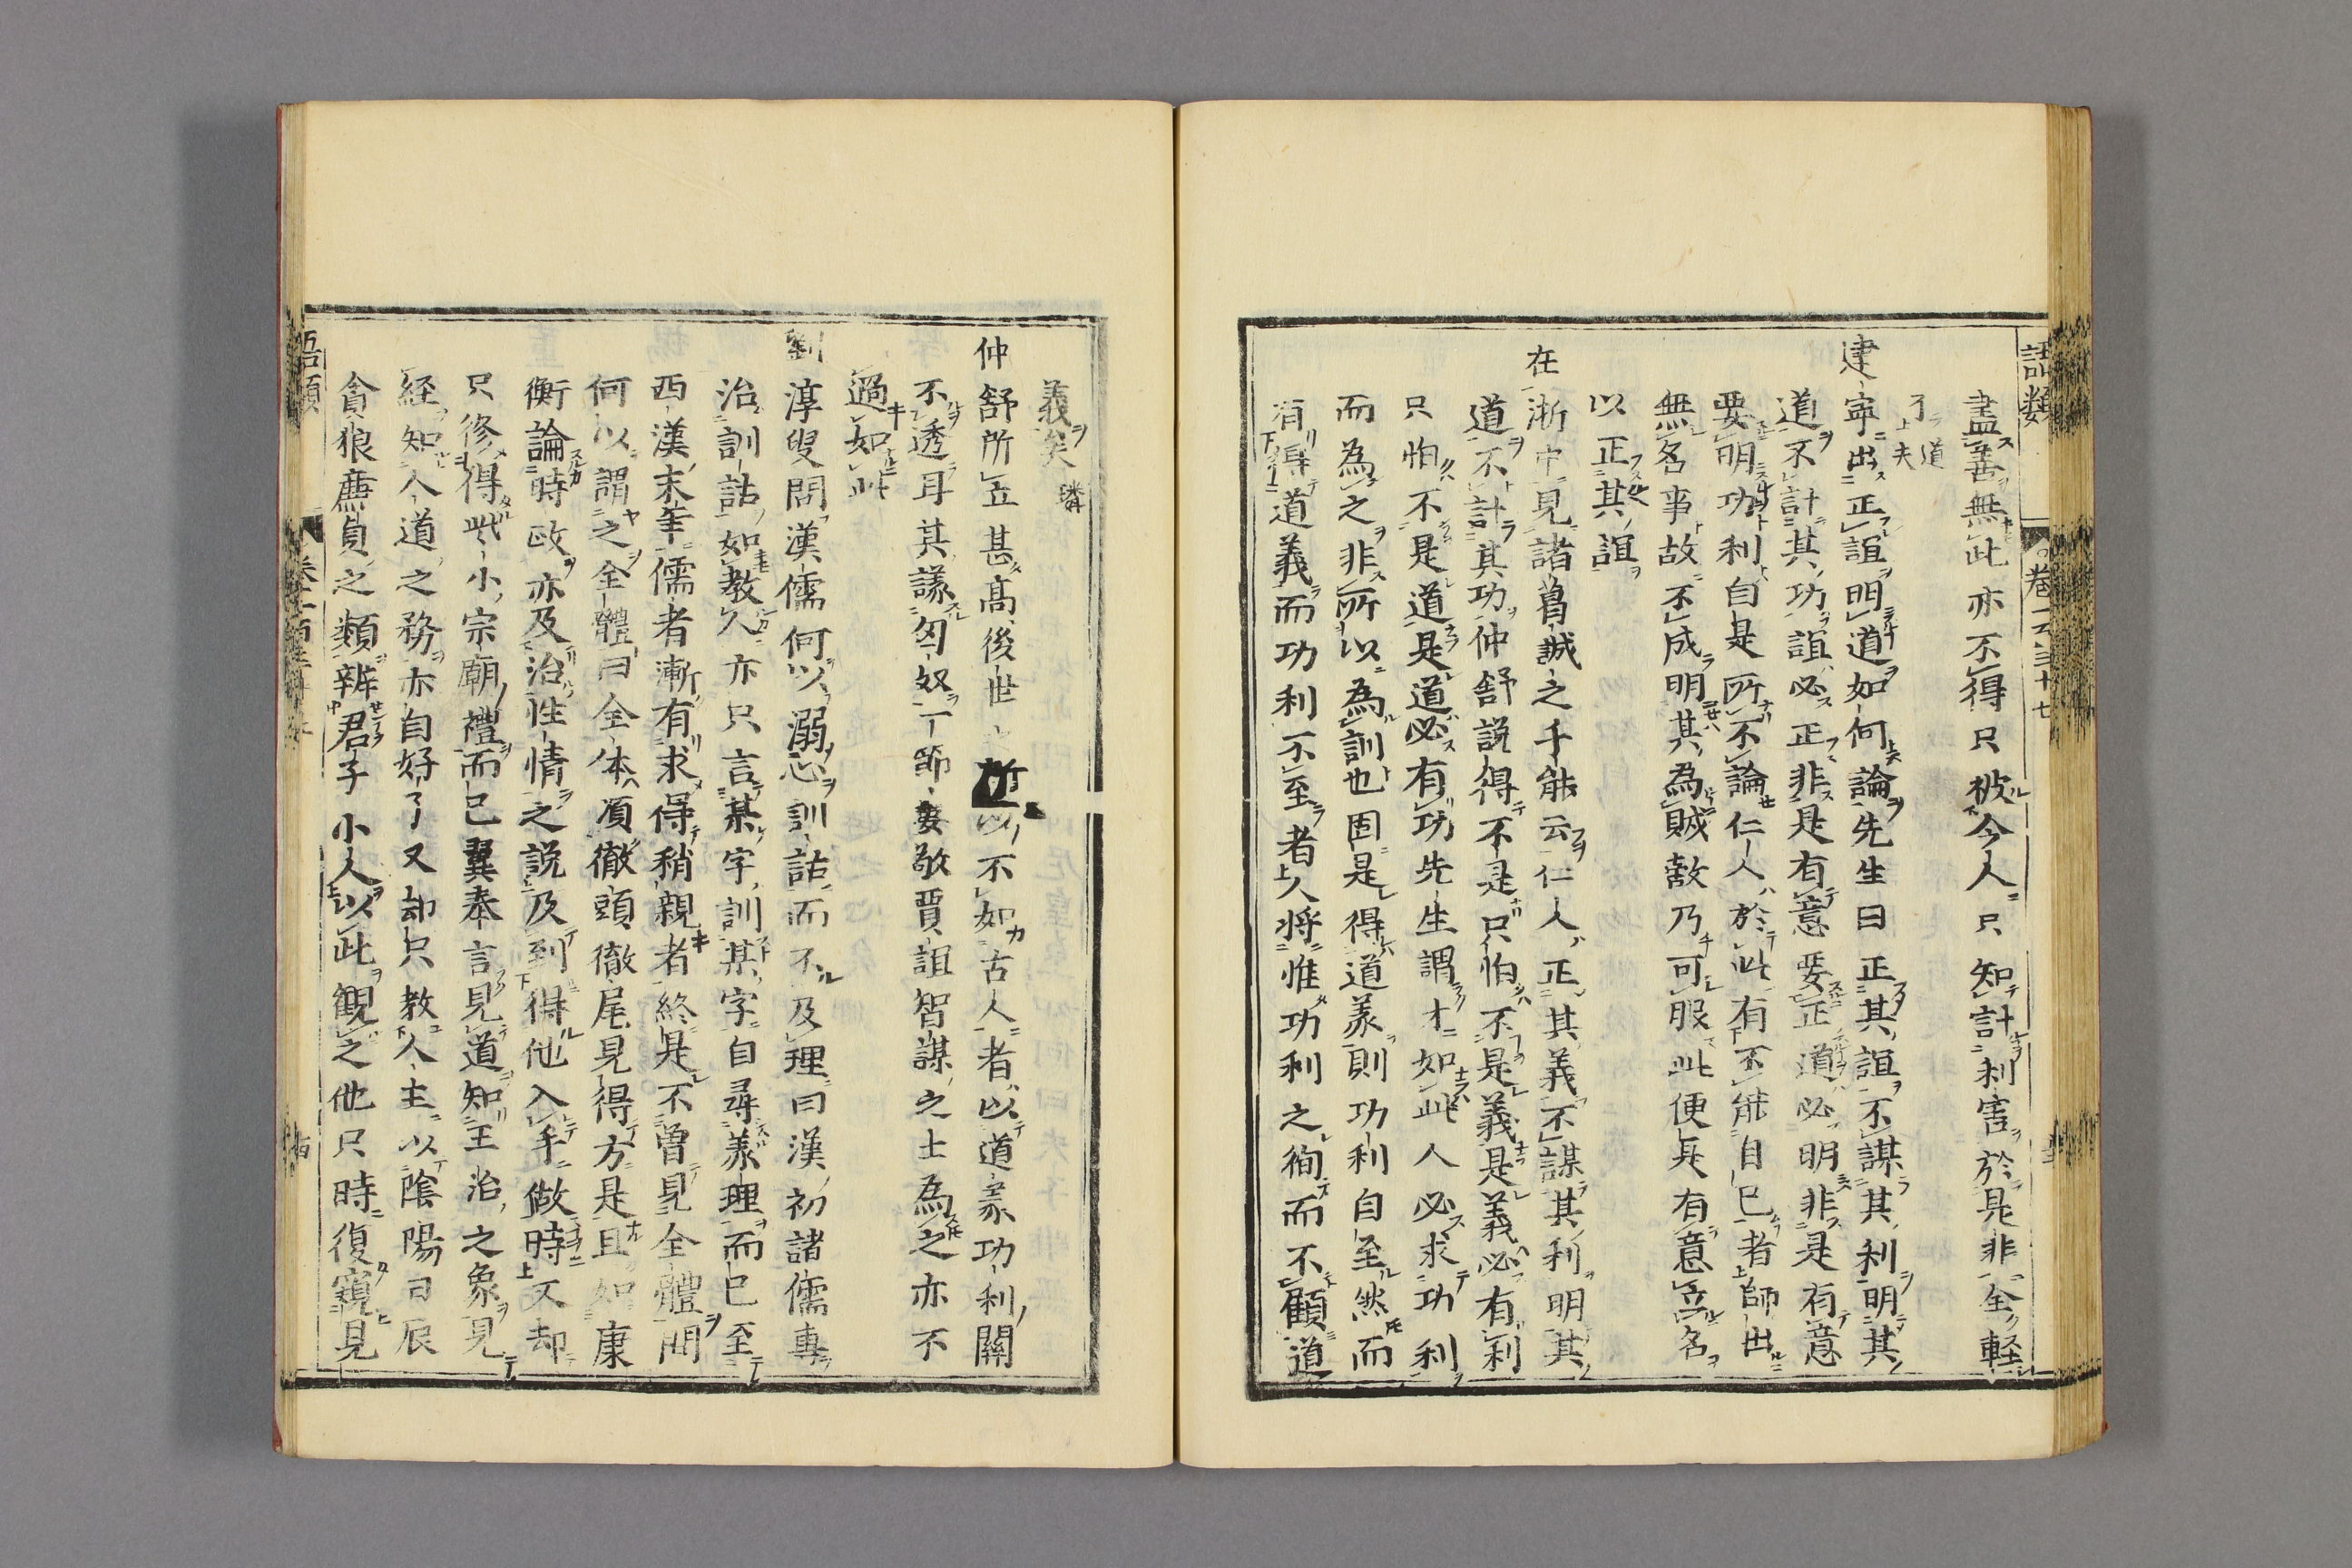 語類　卷一百三十七
盡善無此亦不得只被今人只知計利害於是非全輕
了道夫
建寧出正誼明道如何論先生曰正其誼不謀其利明其
道不計其功誼必正非是有意要正道必明非是有意
要明功利自是所不論仁人於此有不能自已者師出
無名事故不成明其為賊敵乃可服此便是有意立名
以正其誼
在浙中見諸葛誠之千能云仁人正其義不謀其利明其
道不計其功仲舒説得不是只怕不是義是義必有利
只怕不是道是道必有功先生謂才如此人必求功利
而為之非所以為訓也固是得道義則功利自至然而
有得道義而功利不至者人將惟功利之徇而不顧道
義矣璘
仲舒所立甚高後世之所以不如古人者以道義功利關
不透耳其議匈奴一節婁敬賈誼智謀之士為之亦不
過如此
劉淳叟問漢儒何以溺心訓詁而不及理曰漢初諸儒專
治訓詁如教人亦只言某字訓某字自尋義理而已至
西漢末年儒者漸有求得稍親者終是不曾見全體問
何以謂之全體曰全体須徹頭徹尾見得方是且如康
衡論時政亦及治性情之説及到得他入手做時又却
只修得些小宗廟禮而已翼奉言見道知王治之象見
経知人道之務亦自好了又却只教人主以陰陽日辰
貪狼廉貞之類辨君子小人以此觀之他只時復窺見
語類　卷一百三十七